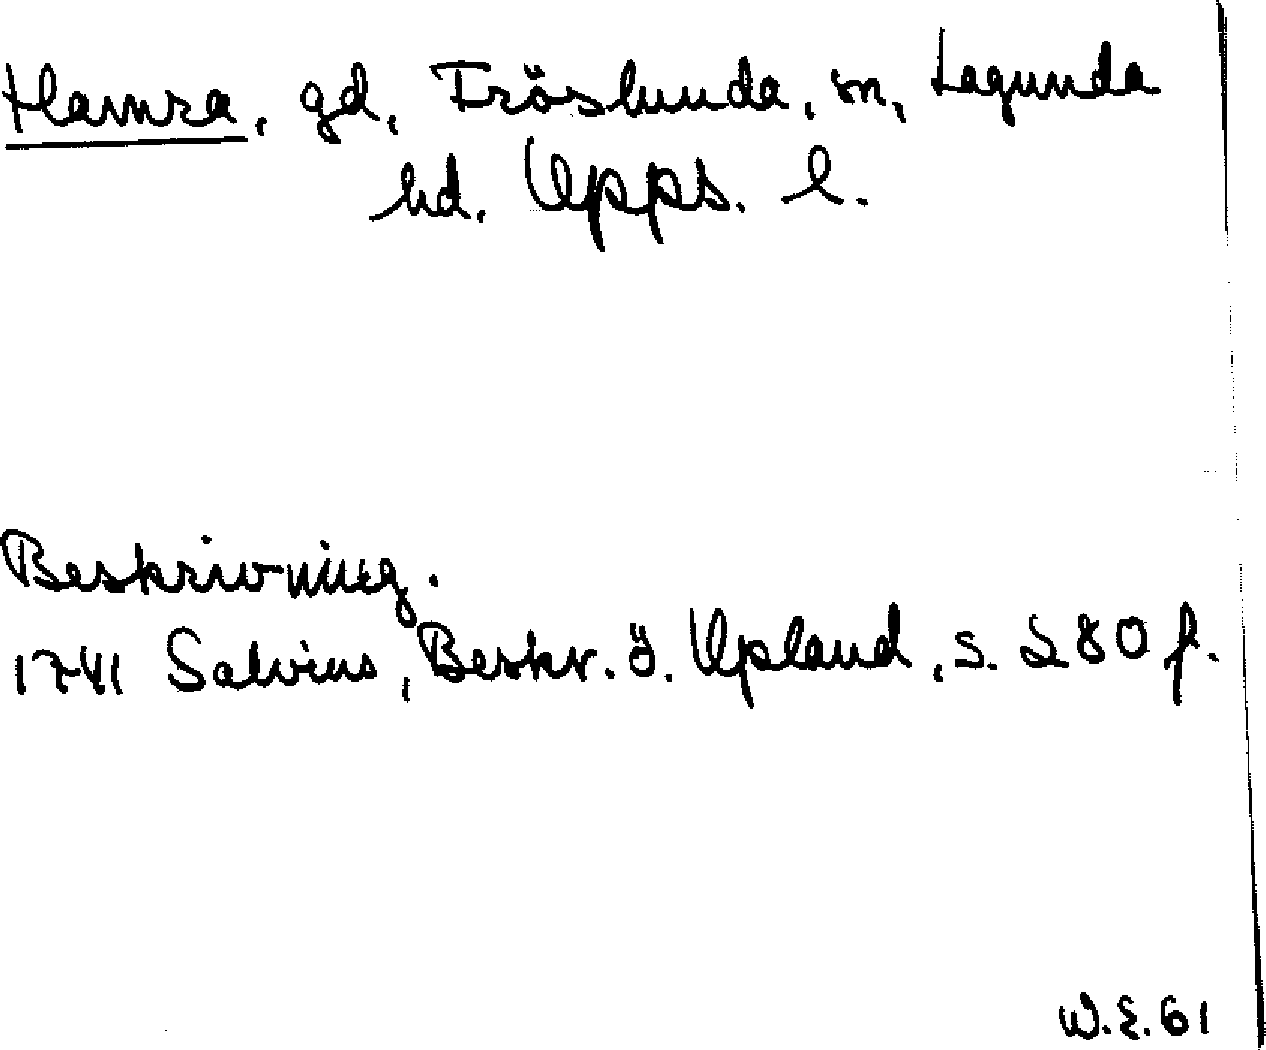 Hamra, gd, Fröslunda, sn, Lagunda
hd. Upps. l.
Beskrivning.
1741 Salvius, Beskr. ö. Upland, s. 280 f.
W.E. 61